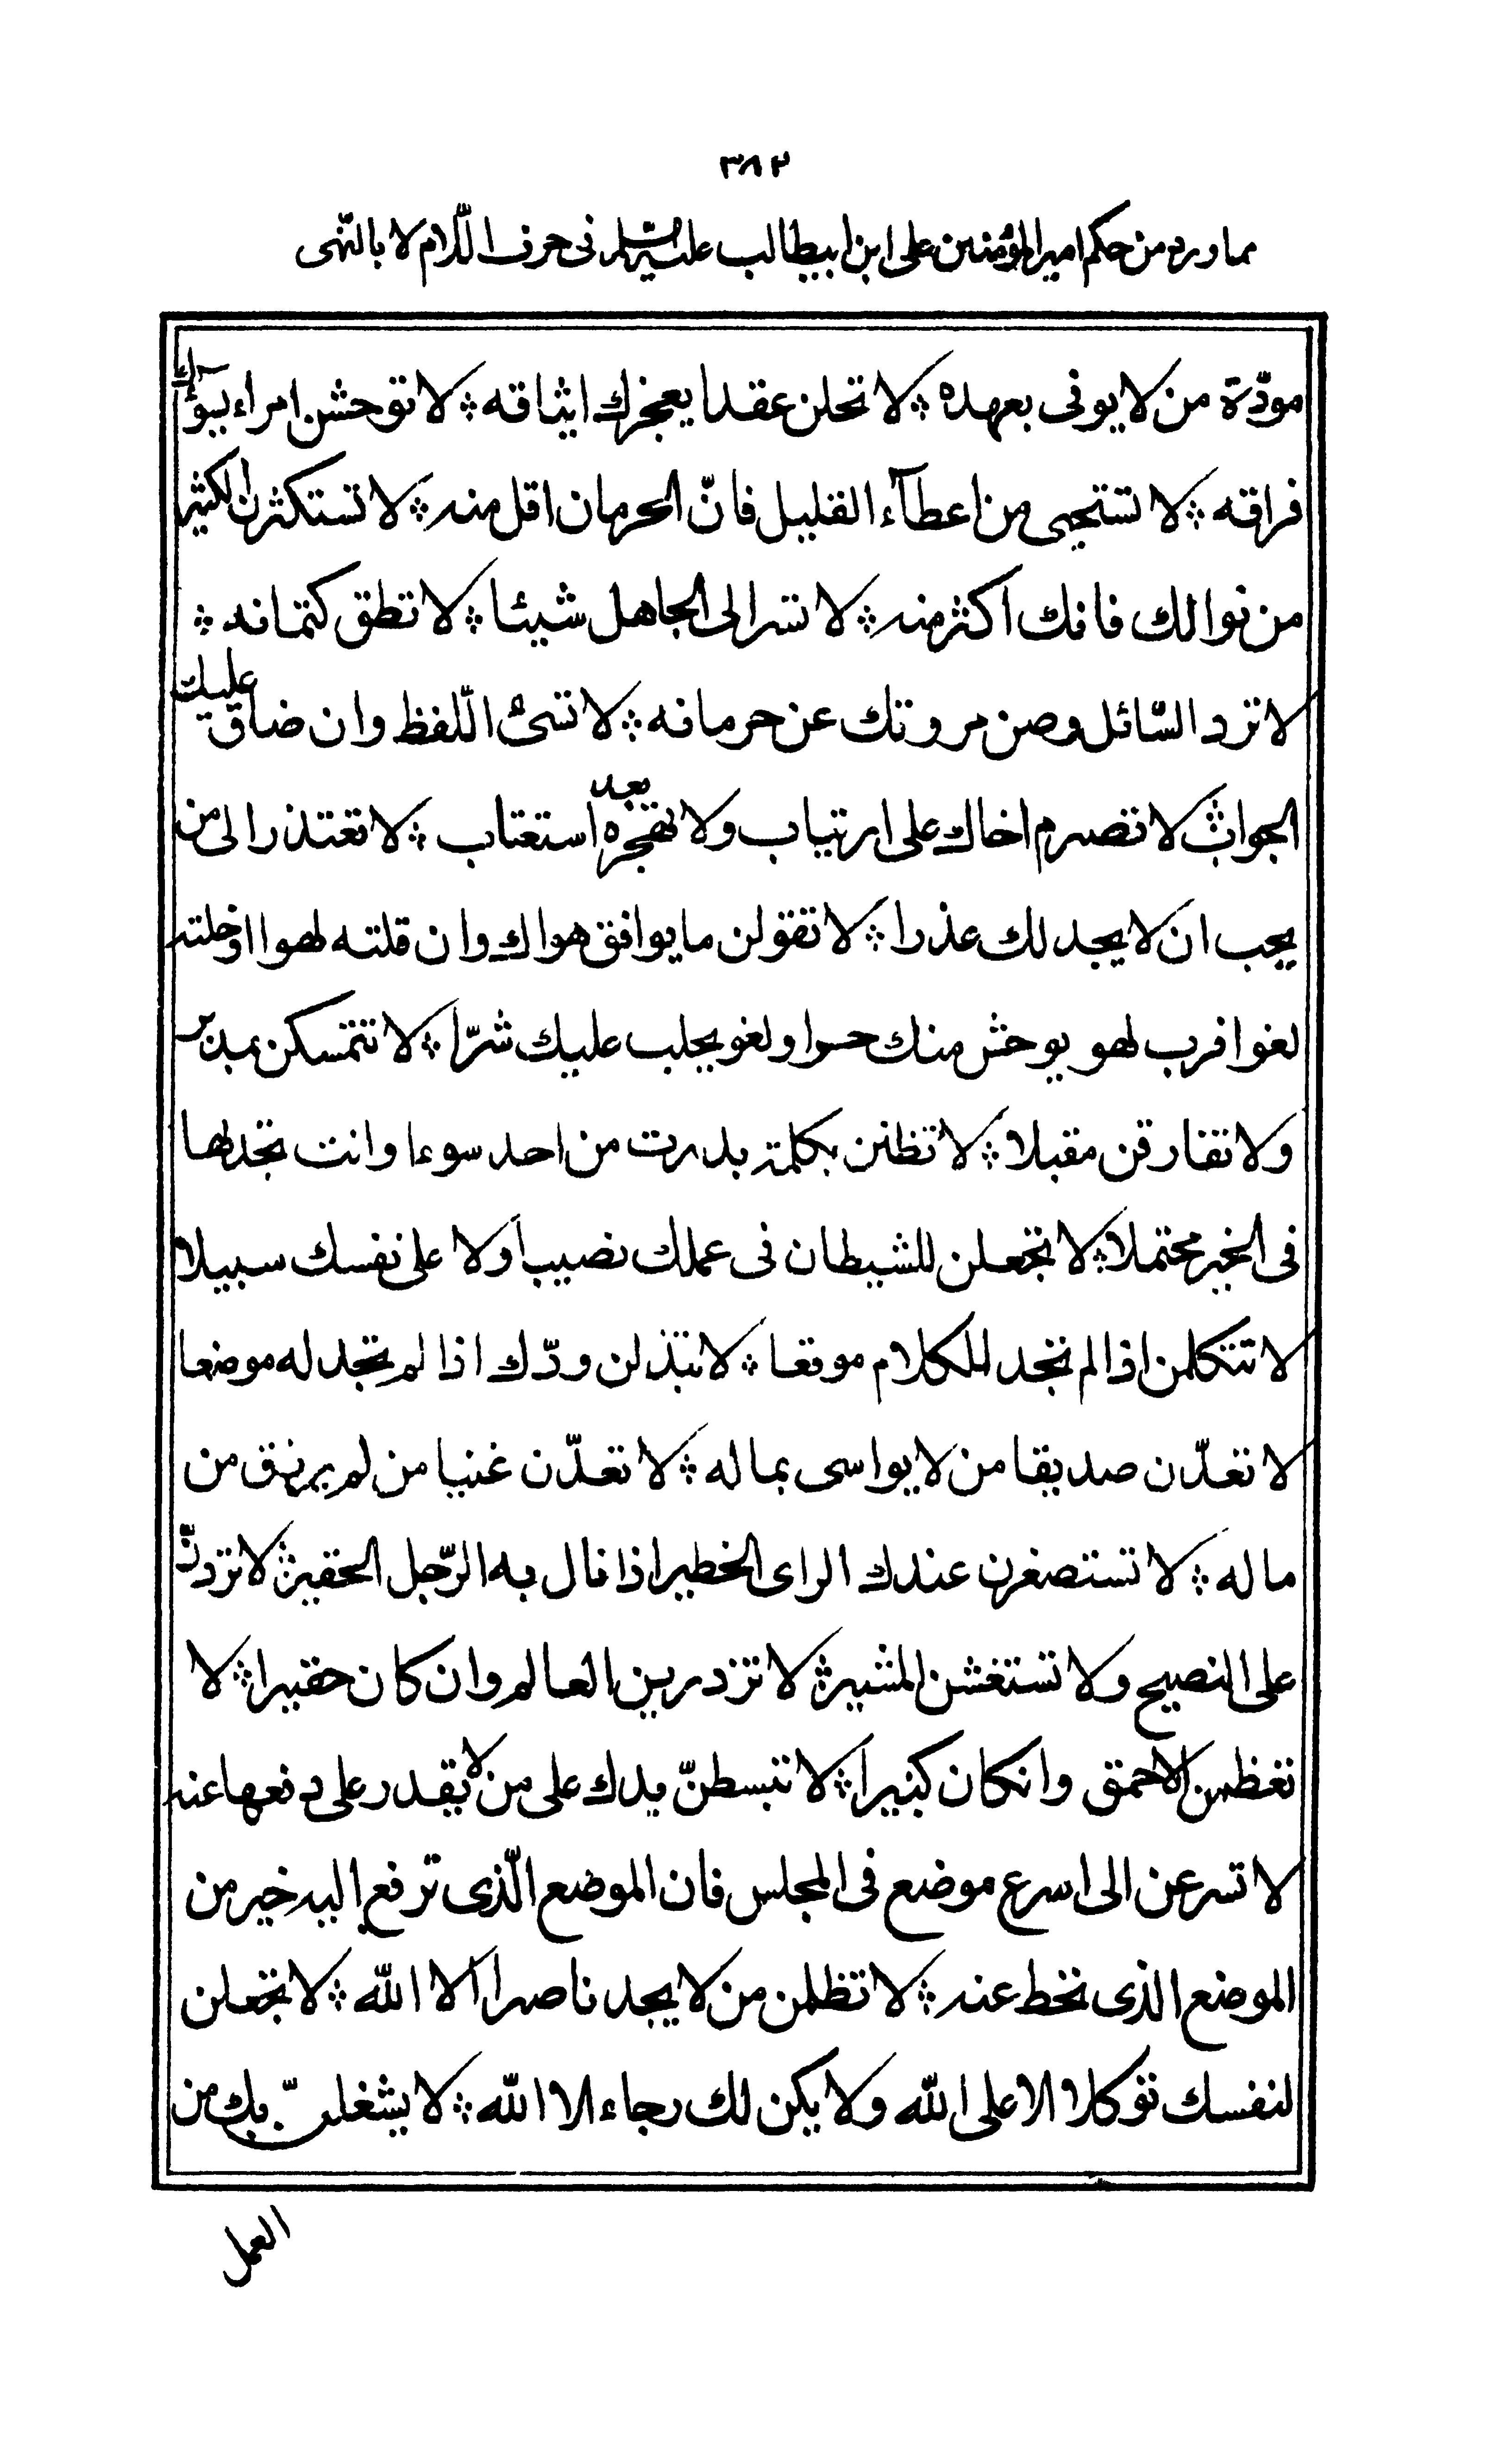 ٣٨٢
مما ورد من حكم امير المؤمنين على ابن ابيطالب عليه السلم فى حرف اللّام لا بالنّهى
مودّة من لا يوفى بعهده ÷ لا تحلن عقدا يعجزك ايثاقه ÷ لا توحش امراء يسوٓئك
فراقه ÷ لا تستحيى من اعطآء القليل فانّ الحرمان اقل منه ÷ لا تستكثرن الكثير
من نوالك فانك اكثر منه ÷ لا تسر الى الجاهل شيئا ÷ لا تطق كتمانه ÷
لا ترد السّائل وصن مروتك عن حرمانه ÷ لا تسئ اللّفظ وان ضاق عليك
الجواب ÷ لا تصرم اخاك على ارتياب ولا تهجره بعد استعتاب ÷ لا تعتذر الى من
يحب ان لا يجد لك عذرا ÷ لا تقولن ما يوافق هواك وان قلته لهوا اوخلته
لغوا فرب لهو يوحش منك حرا ولغو يجلب عليك شرّا ÷ لا تتمسكن بمدبر
ولا تفارقن مقبلا ÷ لا تظنن بكلمة بدرت من احد سوءا وانت تجد لها
فى الخير محتملا ÷ لا تجعلن للشيطان فى عملك نصيبا ولا على نفسك سبيلا
لا تتكلمن اذا لم تجد للكلام موقعا ÷ لا تبذلن ودّك اذا لم تجد له موضعا
لا تعدّن صديقا من لا يواسى بماله ÷ لا تعدّن غنيا من لم يرزق من
ماله ÷ لا تستصغرن عندك الراى الخطير اذا قال به الرّجل الحقير ÷ لا تردنّ
على النصيح ولا تستغشن المشير ÷ لا تزدرين العالم وان كان حقيرا ÷ لا
تعظمن الاحمق وانكان كبيرا ÷ لا تبسطنّ يدك على من لا يقدر على دفعها عنه
لا تسرعن الى اسرع موضع فى المجلس فان الموضع الّذى ترفع اليه خير من
الموضع الذى تحط عنه ÷ لا تظلمن من لا يجد ناصرا الا اللّه ÷ لا تجعلن
لنفسك توكلا الا على اللّه ولا يكن لك رجاء الا اللّه ÷ لا يشغلنّ بك من
العمل